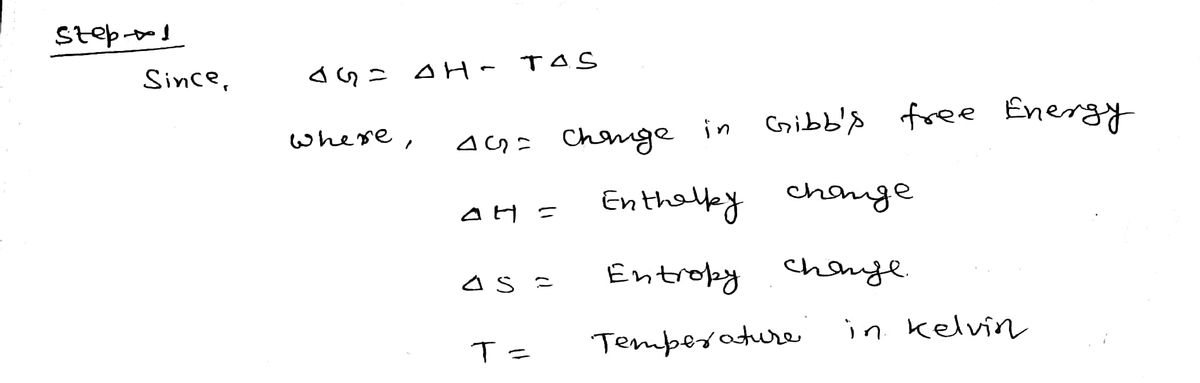 Step-1
Since, ΔG = ΔH - TΔS
where, ΔG = Change in Gibb's free Energy
ΔH = Enthalpy change
ΔS = Entropy change.
T = Temperature in Kelvin